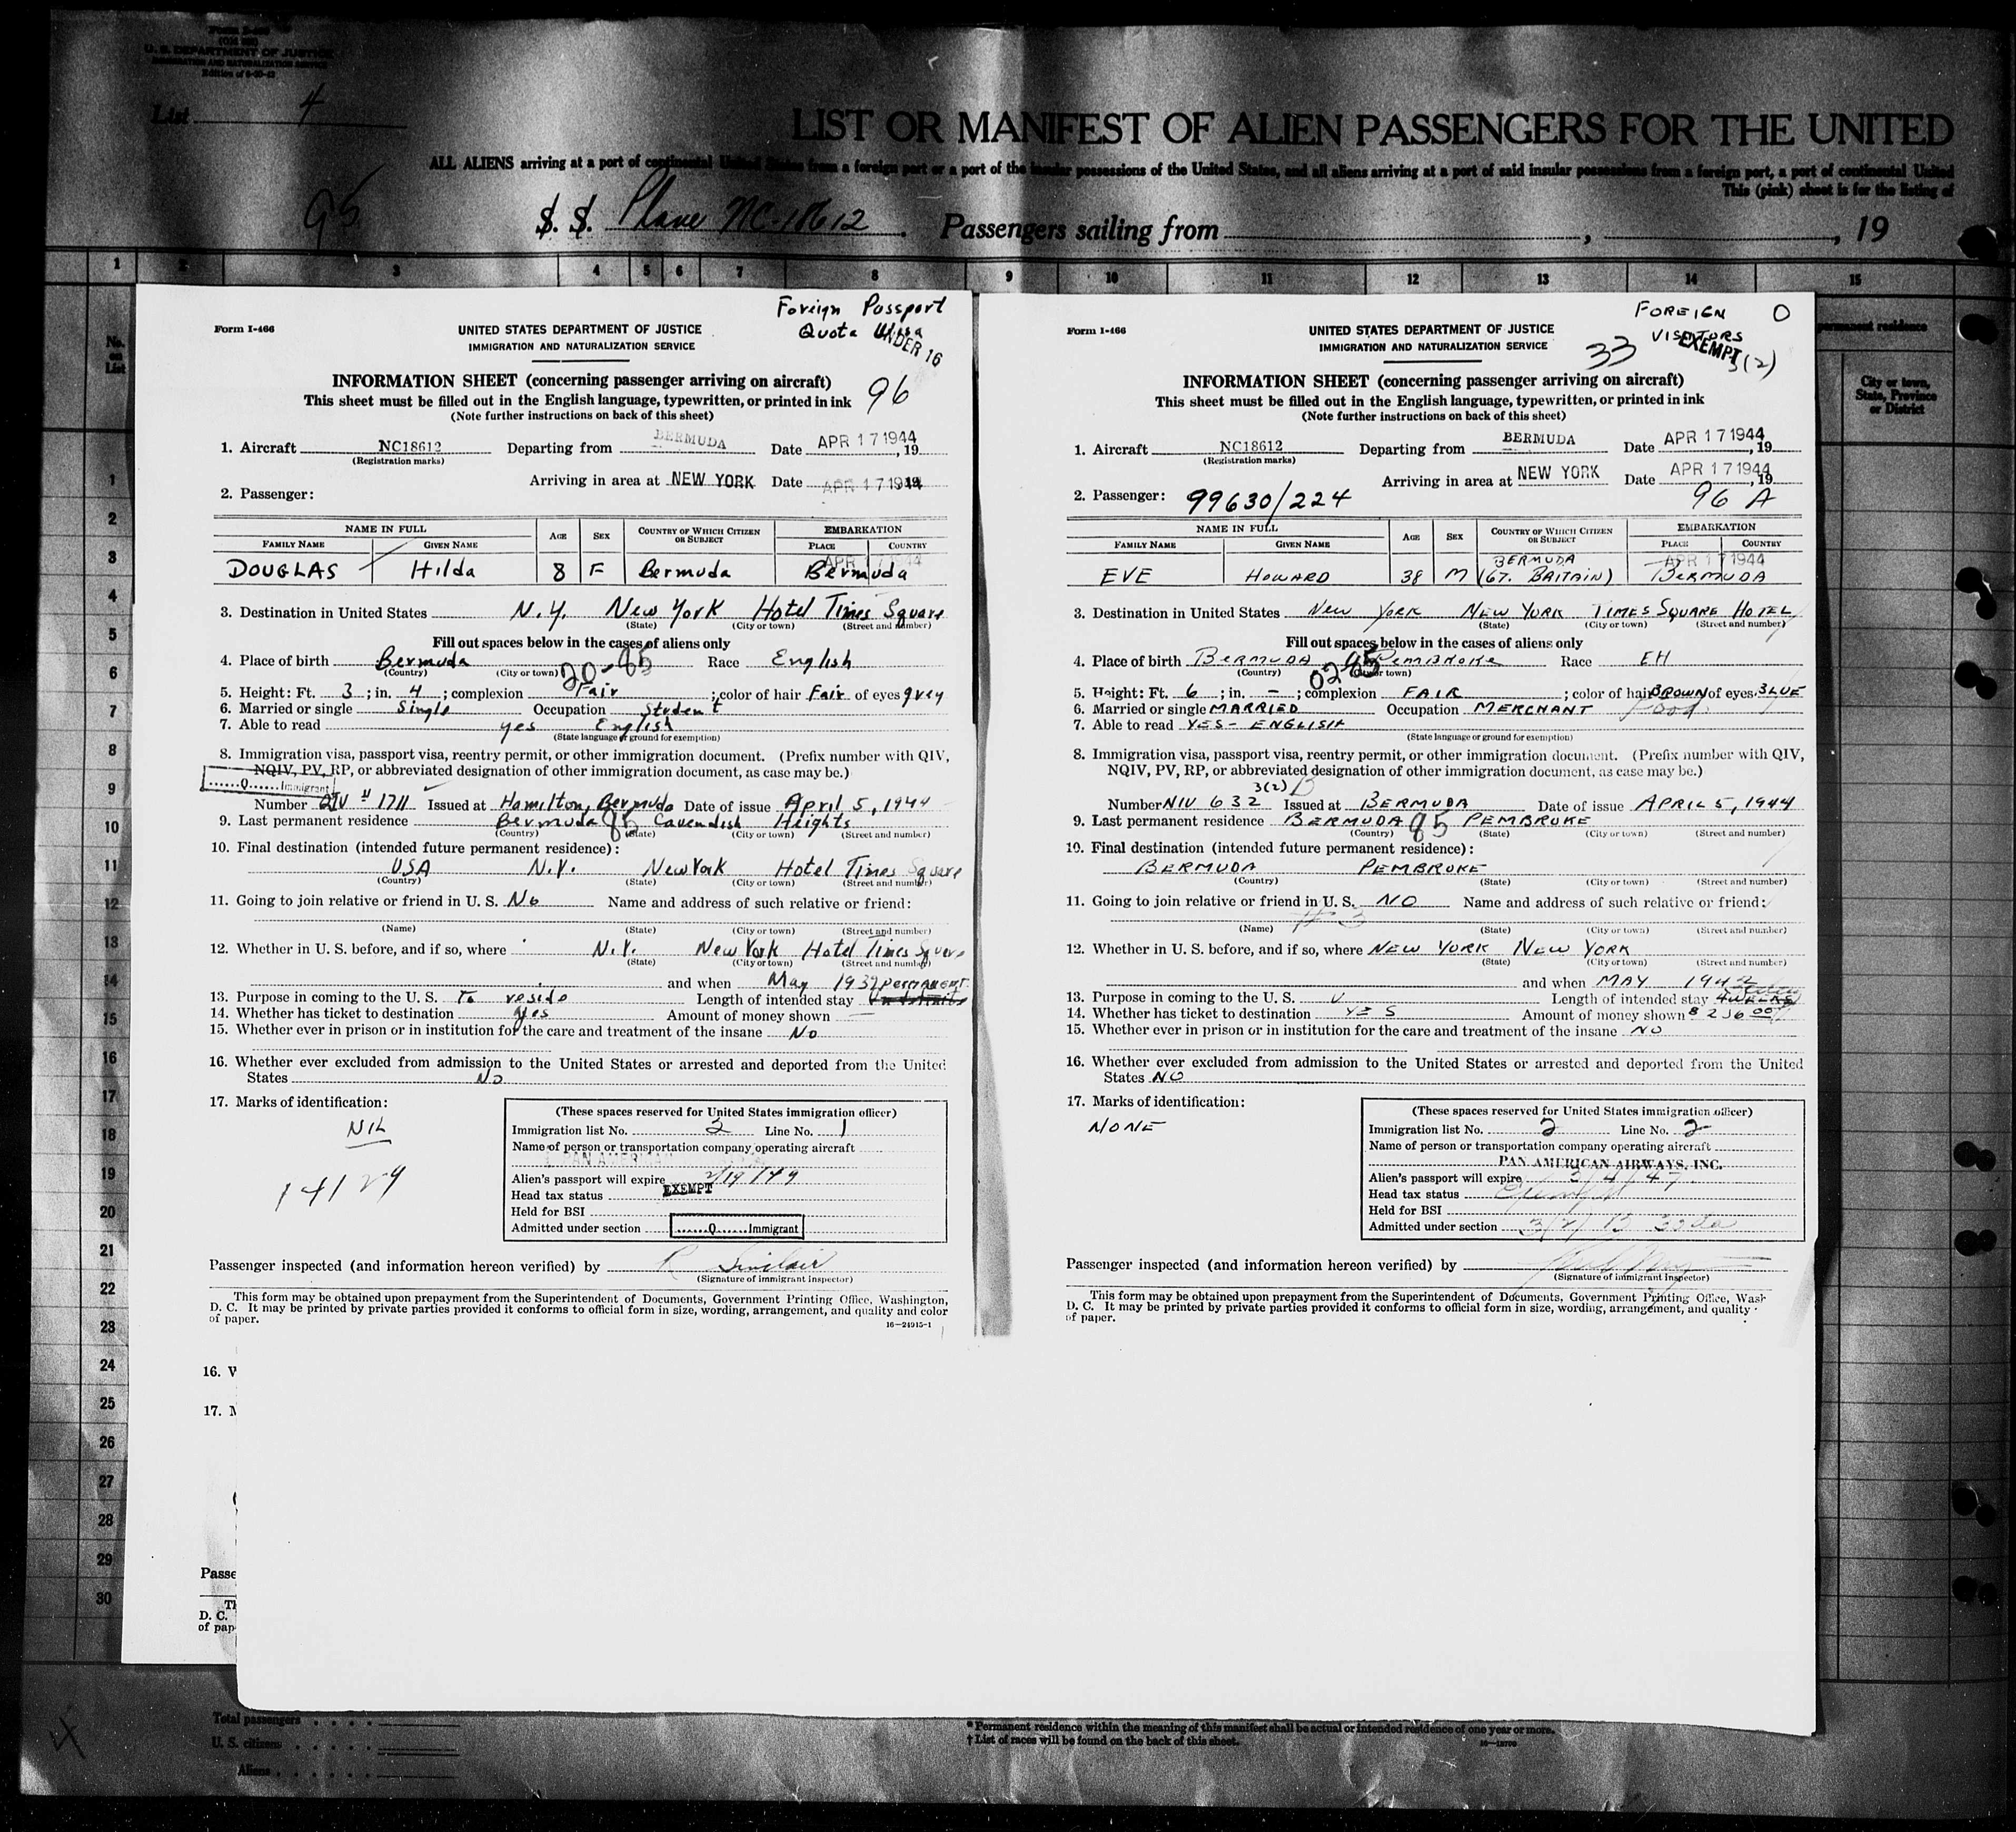 Form I-415
U. S. DEPARTMENT OF JUSTICE
IMMIGRATION AND NATURALIZATION SERVICE
List 4
LIST OR MANIFEST OF ALIEN PASSENGERS FOR THE UNITED
ALL ALIENS arriving at a port of continental United States from a foreign port or a port of the insular possessions of the United States, and all aliens arriving at a port of said insular possessions from a foreign port, a port of continental United
This (pink) sheet is for the listing of
95 S. S. Plane NC-18612 . Passengers sailing from , , 19
1 2 3 4 5 6 7 8 9 10 11 12 13 14 15
No. on List
permanent residence
City or town, State, Province or District
Foreign Passport
Quota Visa
UNDER 16
Form I-466
UNITED STATES DEPARTMENT OF JUSTICE
IMMIGRATION AND NATURALIZATION SERVICE
INFORMATION SHEET (concerning passenger arriving on aircraft)
This sheet must be filled out in the English language, typewritten, or printed in ink 96
(Note further instructions on back of this sheet)
1. Aircraft NC18612 Departing from BERMUDA Date APR 17 1944, 19
(Registration marks)
Arriving in area at NEW YORK Date APR 17 1944
2. Passenger:
NAME IN FULL AGE SEX COUNTRY OF WHICH CITIZEN OR SUBJECT EMBARKATION
FAMILY NAME GIVEN NAME PLACE COUNTRY
APR 17 1944
DOUGLAS Hilda 8 F Bermuda Bermuda
3. Destination in United States N.Y. New York Hotel Times Square
(State) (City or town) (Street and number)
Fill out spaces below in the cases of aliens only
4. Place of birth Bermuda 20-85 Race English
(Country) (City or town)
5. Height: Ft. 3 ; in. 4 ; complexion Fair ; color of hair Fair of eyes grey
6. Married or single Single Occupation Student
7. Able to read yes English
(State language or ground for exemption)
8. Immigration visa, passport visa, reentry permit, or other immigration document. (Prefix number with QIV,
NQIV, PV, RP, or abbreviated designation of other immigration document, as case may be.)
......Q......Immigrant
Number QIV # 1711 Issued at Hamilton, Bermuda Date of issue April 5, 1944
9. Last permanent residence Bermuda 85 Cavendish Heights
(Country) (State) (City or town) (Street and number)
10. Final destination (intended future permanent residence):
USA N.Y. New York Hotel Times Square
(Country) (State) (City or town) (Street and number)
11. Going to join relative or friend in U. S. No Name and address of such relative or friend:
(Name) (State) (City or town) (Street and number)
12. Whether in U. S. before, and if so, where N.Y. New York Hotel Times Square
(State) (City or town) (Street and number)
and when May 1939 permanent
13. Purpose in coming to the U. S. To reside Length of intended stay
14. Whether has ticket to destination yes Amount of money shown —
15. Whether ever in prison or in institution for the care and treatment of the insane No
16. Whether ever excluded from admission to the United States or arrested and deported from the United
States No
17. Marks of identification:
NIL
14129
(These spaces reserved for United States immigration officer)
Immigration list No. 2 Line No. 1
Name of person or transportation company operating aircraft
PAN AMERICAN
Alien's passport will expire 2/19/49
Head tax status EXEMPT
Held for BSI
Admitted under section ......Q......Immigrant
Passenger inspected (and information hereon verified) by R Sinclair
(Signature of immigrant inspector)
This form may be obtained upon prepayment from the Superintendent of Documents, Government Printing Office, Washington,
D. C. It may be printed by private parties provided it conforms to official form in size, wording, arrangement, and quality and color
of paper.
16—24915-1
FOREIGN O
VISITORS
EXEMPT
33 3(2)
Form I-466
UNITED STATES DEPARTMENT OF JUSTICE
IMMIGRATION AND NATURALIZATION SERVICE
INFORMATION SHEET (concerning passenger arriving on aircraft)
This sheet must be filled out in the English language, typewritten, or printed in ink
(Note further instructions on back of this sheet)
1. Aircraft NC18612 Departing from BERMUDA Date APR 17 1944, 19
(Registration marks)
Arriving in area at NEW YORK Date APR 17 1944, 19
2. Passenger: 99630/224 96 A
NAME IN FULL AGE SEX COUNTRY OF WHICH CITIZEN OR SUBJECT EMBARKATION
FAMILY NAME GIVEN NAME PLACE COUNTRY
BERMUDA APR 17 1944
EVE HOWARD 38 M (GT. BRITAIN) BERMUDA
3. Destination in United States NEW YORK NEW YORK TIMES SQUARE HOTEL
(State) (City or town) (Street and number)
Fill out spaces below in the cases of aliens only
4. Place of birth BERMUDA PEMBROKE Race EH
02-85
(Country) (City or town)
5. Height: Ft. 6 ; in. - ; complexion FAIR ; color of hair BROWN of eyes BLUE
6. Married or single MARRIED Occupation MERCHANT Food
7. Able to read YES - ENGLISH
(State language or ground for exemption)
8. Immigration visa, passport visa, reentry permit, or other immigration document. (Prefix number with QIV,
NQIV, PV, RP, or abbreviated designation of other immigration document, as case may be.)
3(2) B
Number NIV 632 Issued at BERMUDA Date of issue APRIL 5, 1944
9. Last permanent residence BERMUDA 85 PEMBROKE
(Country) (State) (City or town) (Street and number)
10. Final destination (intended future permanent residence):
BERMUDA PEMBROKE
(Country) (State) (City or town) (Street and number)
11. Going to join relative or friend in U. S. NO Name and address of such relative or friend:
# 3
(Name) (State) (City or town) (Street and number)
12. Whether in U. S. before, and if so, where NEW YORK NEW YORK
(State) (City or town) (Street and number)
and when MAY 1942
13. Purpose in coming to the U. S. V Length of intended stay 4 WEEKS
14. Whether has ticket to destination YES Amount of money shown
15. Whether ever in prison or in institution for the care and treatment of the insane NO
16. Whether ever excluded from admission to the United States or arrested and deported from the United
States NO
17. Marks of identification:
NONE
(These spaces reserved for United States immigration officer)
Immigration list No. 2 Line No. 2
Name of person or transportation company operating aircraft
PAN AMERICAN AIRWAYS, INC.
Alien's passport will expire 3/4/47
Head tax status
Held for BSI
Admitted under section 3(2) B
Passenger inspected (and information hereon verified) by
(Signature of immigrant inspector)
This form may be obtained upon prepayment from the Superintendent of Documents, Government Printing Office, Wash
D. C. It may be printed by private parties provided it conforms to official form in size, wording, arrangement, and quality
of paper.
1
2
3
4
5
6
7
8
9
10
11
12
13
14
15
16
17
18
19
20
21
22
23
24
25
26
27
28
29
30
16. W
17. M
Passe
Th
D. C.
of pap
Total passengers
U. S. citizens
Aliens
* Permanent residence within the meaning of this manifest shall be actual or intended residence of one year or more.
† List of races will be found on the back of this sheet.